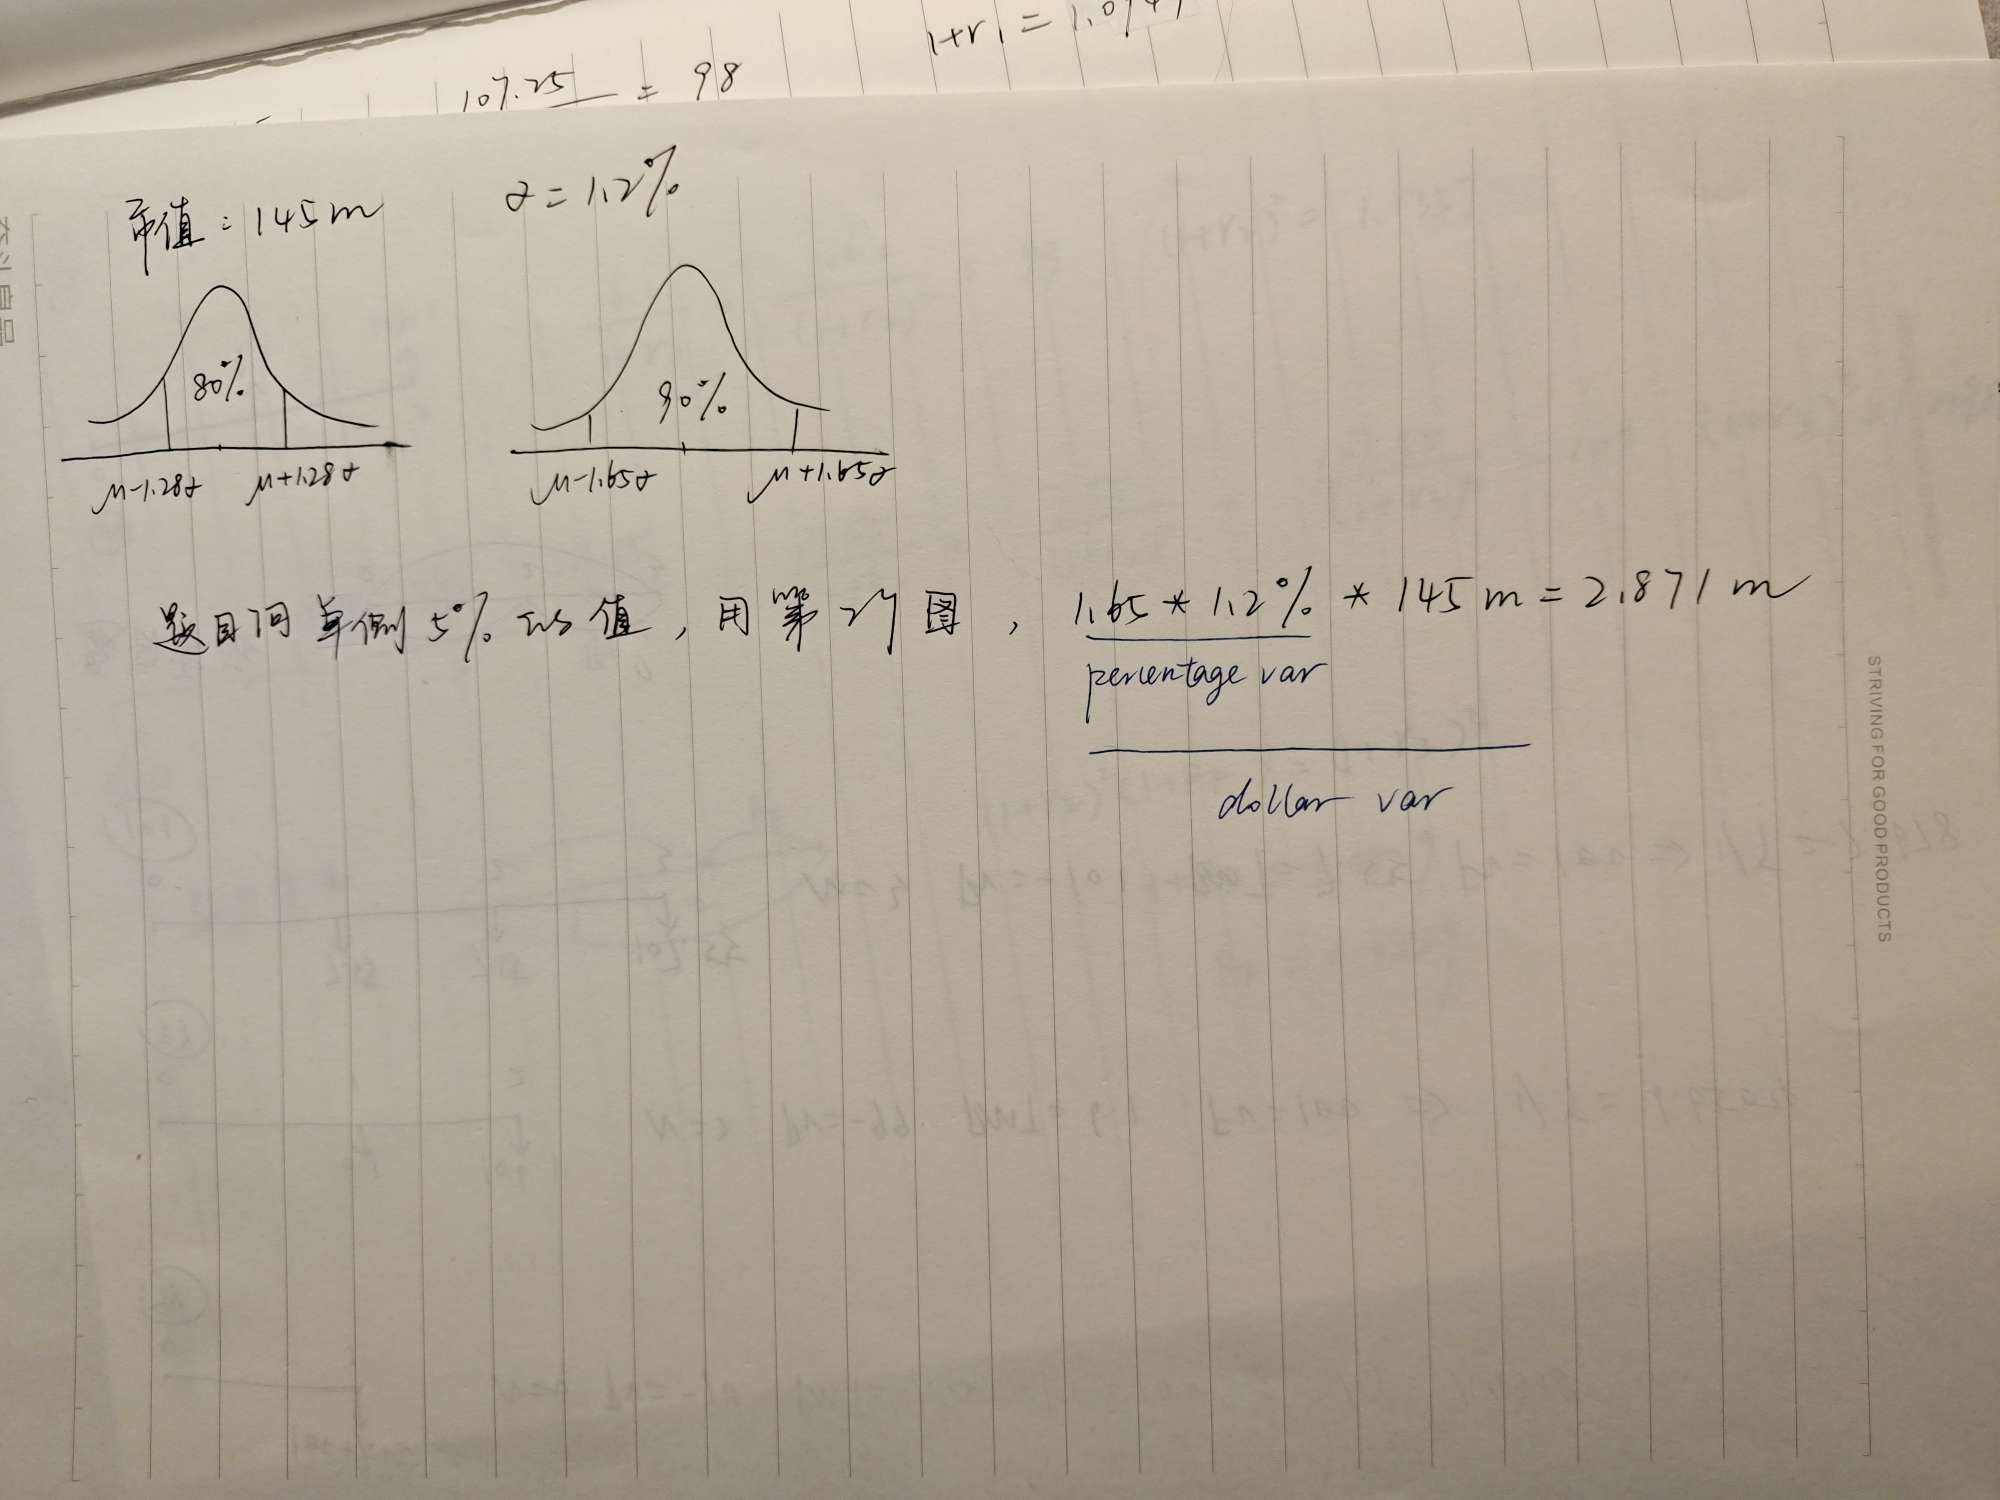 1+r1 =
107.25 = 98
市值：145m
σ = 1.2%
80%
μ-1.28σ μ+1.28σ
90%
μ-1.65σ μ+1.65σ
题目问单侧5%的值，用第2个图，1.65 * 1.2% * 145m = 2.871m
percentage var
dollar var
STRIVING FOR GOOD PRODUCTS